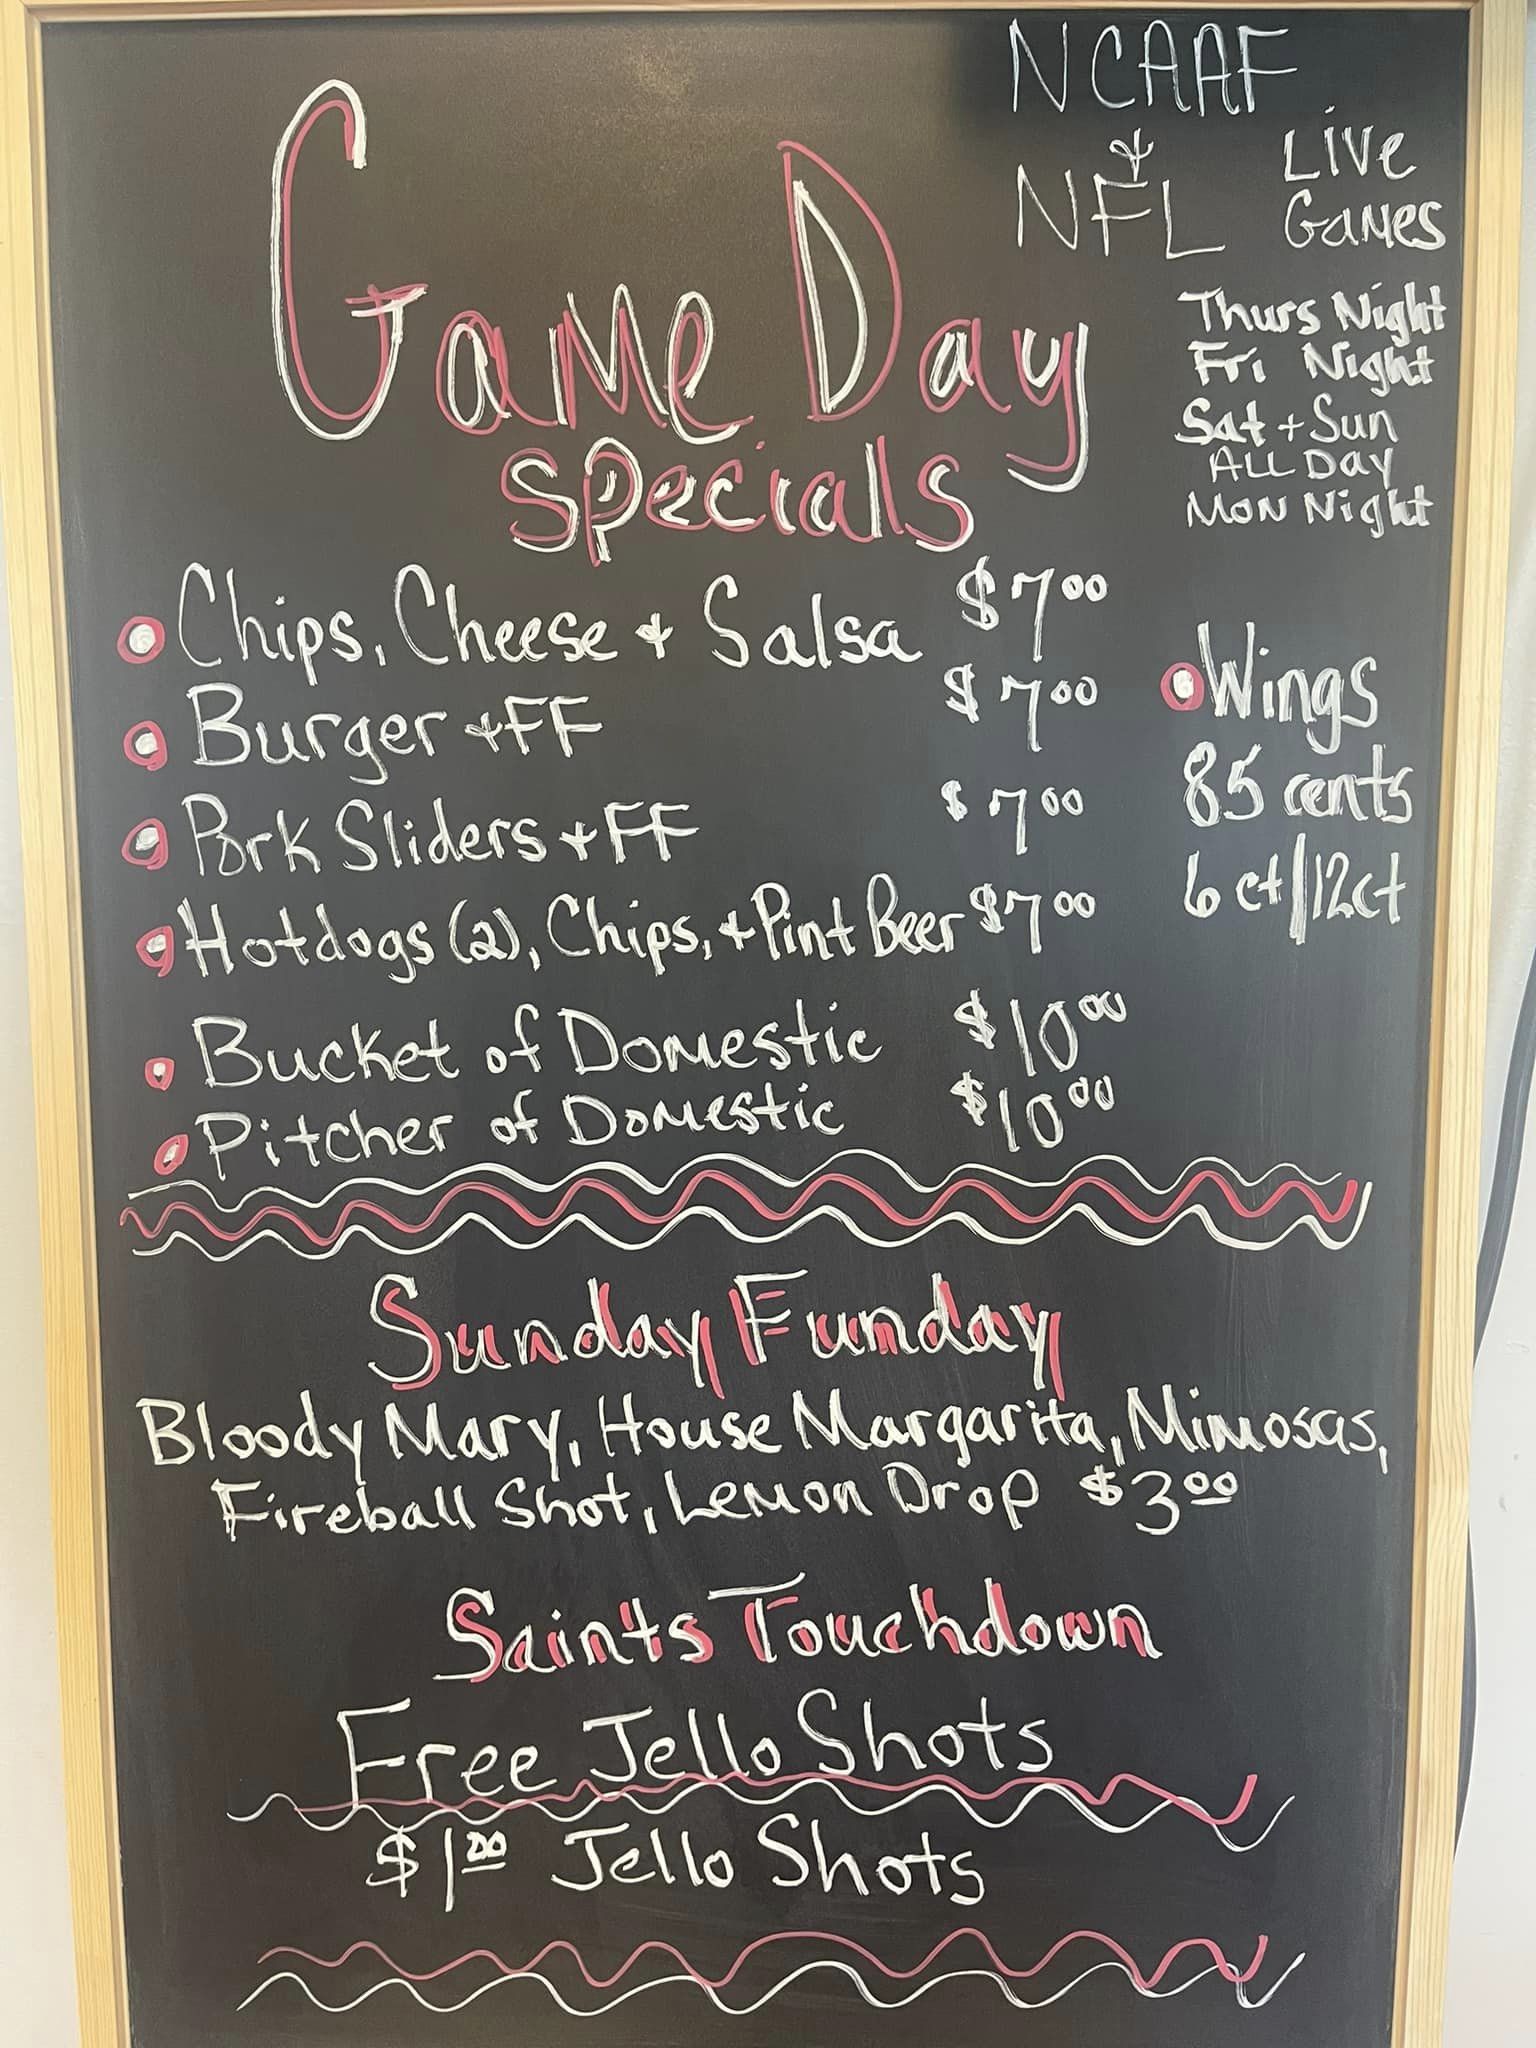 NCAAF
&
NFL
Live
Games
Thurs Night
Fri Night
Sat + Sun
ALL Day
Mon Night
Game Day
Specials
Chips, Cheese & Salsa $7.00
Burger & FF $7.00
Pork Sliders & FF $7.00
Hotdogs (2), Chips, & Pint Beer $7.00
Bucket of Domestic $10.00
Pitcher of Domestic $10.00
Wings
85 cents
6 ct/12ct
Sunday Funday
Bloody Mary, House Margarita, Mimosas,
Fireball Shot, Lemon Drop $3.00
Saints Touchdown
Free Jello Shots
$1.00 Jello Shots